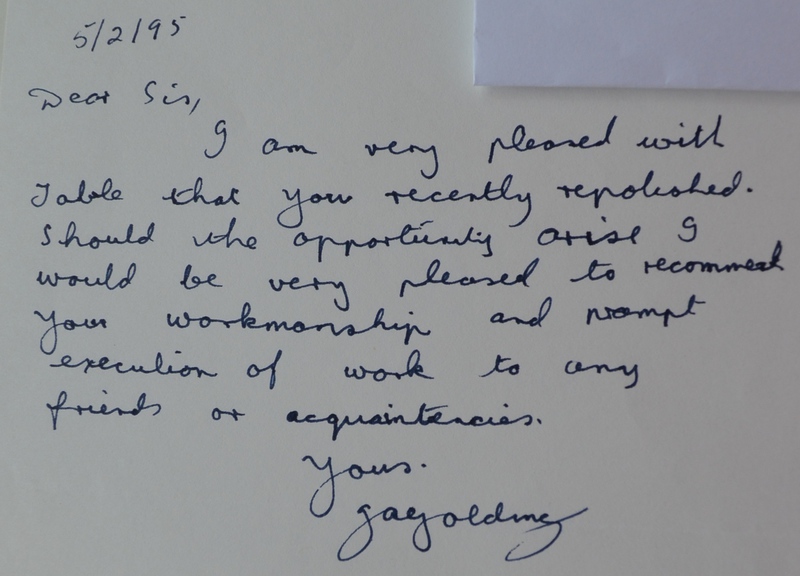 5/2/95
Dear Sir,
I am very pleased with
Table that you recently repolished.
Should the opportunity arise I
would be very pleased to recommend
your workmanship and prompt
execution of work to any
friends or acquaintencies.
Yours.